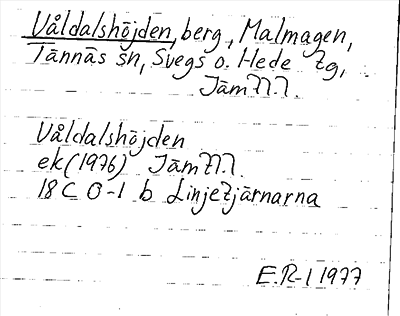 Våldalshöjden, berg, Malmagen,
Tännäs sn, Svegs o. Hede tg,
Jämtl.
Våldalshöjden
ek (1976) Jämtl.
18 C 0-1 b Linjetjärnarna
E.R-l 1977